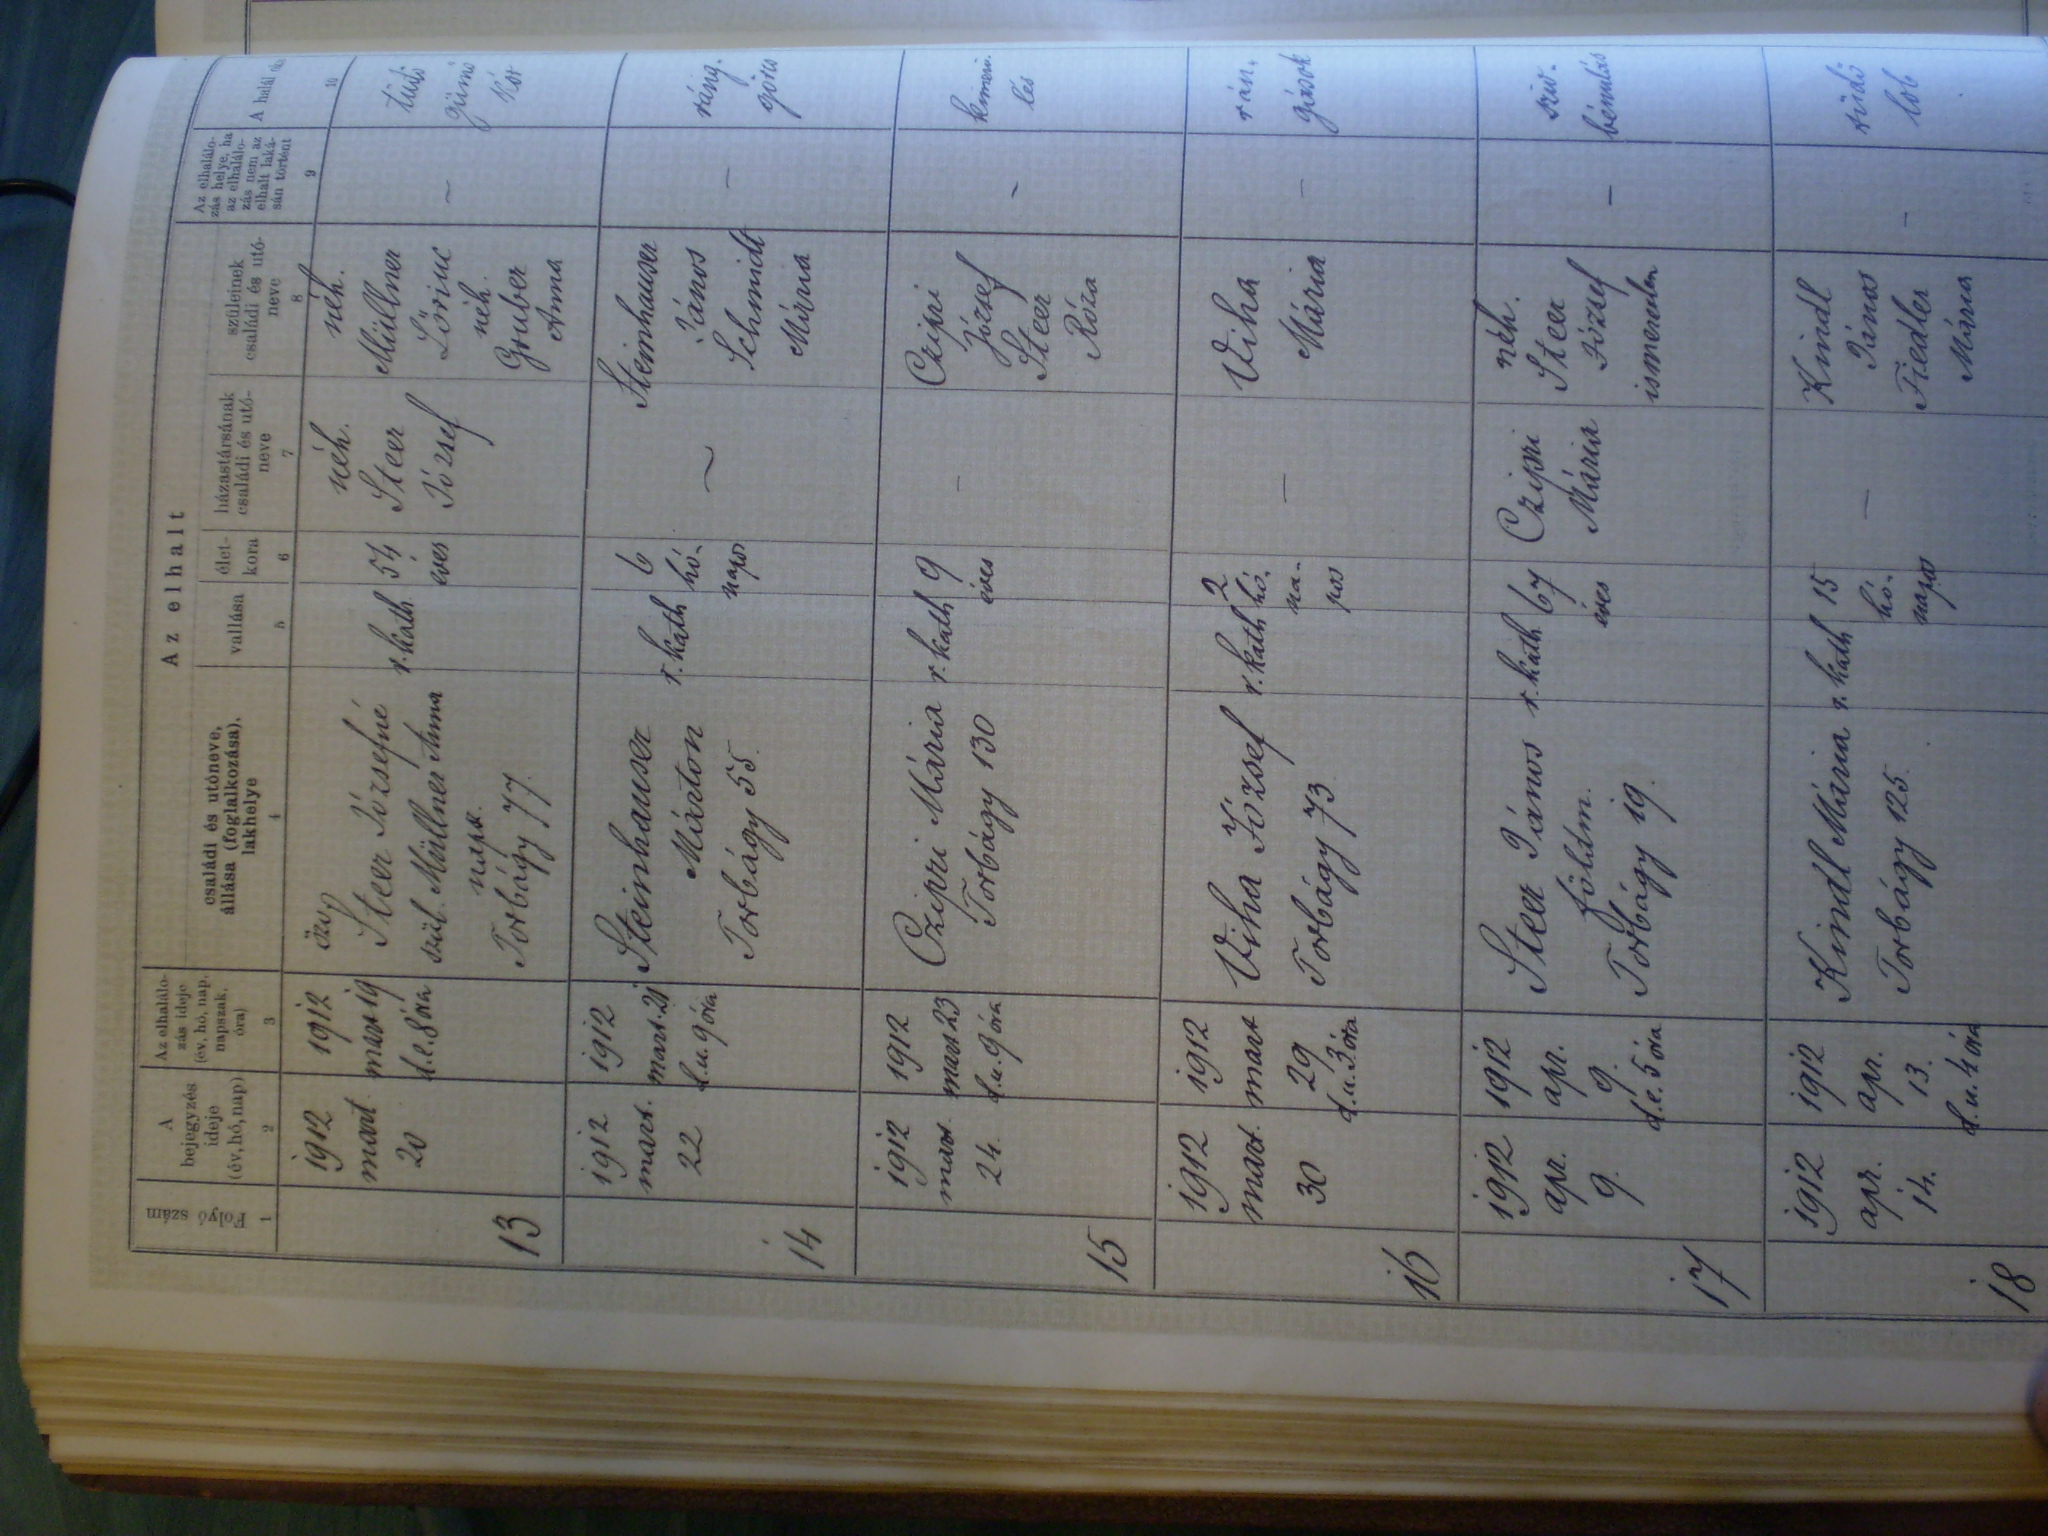 Az elhalt
Folyó
szám
A
bejegyzés
ideje
(év, hó, nap)
Az elhalálo-
zás ideje
(év, hó, nap,
napszak,
óra)
családi és utóneve,
állása (foglalkozása),
lakhelye
vallása
élet-
kora
házastársának
családi és utó-
neve
szüleinek
családi és utó-
neve
Az elhalálo-
zás helye, ha
az elhalálo-
zás nem az
elhalt laká-
sán történt
A halál
1
2
3
4
5
6
7
8
9
10
13
1912
mart.
20
1912
mart 19
d.e. 8 óra
özv
Steer Józsefné
szül. Müllner Anna
naps.
Torbágy 77.
r. kath
54
éves
néh.
Steer
József
néh.
Müllner
Lőrinc
néh.
Gruber
Anna
–
tüdő
gümő
kór
14
1912
mart.
22
1912
mart. 21
d.u. 9 óra
Steinhauser
Márton
Torbágy 55.
r. kath
6
hó-
napos
–
Steinhauser
János
Schmidt
Mária
–
ráng.
görcs
15
1912
mart.
24.
1912
mart 23
d.u. 9 óra
Czipri Mária
Torbágy 130
r. kath
9
éves
–
Czipri
József
Steer
Róza
–
kimerü-
lés
16
1912
mart.
30
1912
mart
29
d.u. 3 óra
Viha József
Torbágy 73
r. kath
2
hó-
na-
pos
–
Viha
Mária
–
rán-
gások
17
1912
apr.
9.
1912
apr.
9.
d.e. 5 óra
Steer János
földm.
Torbágy 19.
r. kath
67
éves
Czipri
Mária
néh.
Steer
József
ismeretlen
–
sziv-
bénulás
18
1912
apr.
14.
1912
apr.
13.
d.u. 4 óra
Kindl Mária
Torbágy 125.
r. kath
15
hó-
napos
–
Kindl
János
Fiedler
Mária
–
tüdő
lob